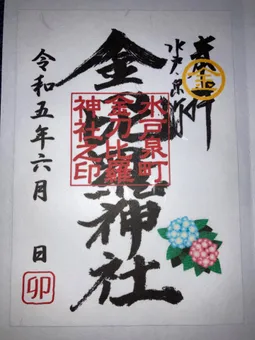 奉拝
水戸・泉町
金
金刀比羅神社
水戸泉町
金刀比羅
神社之印
令和五年六月 日
卯